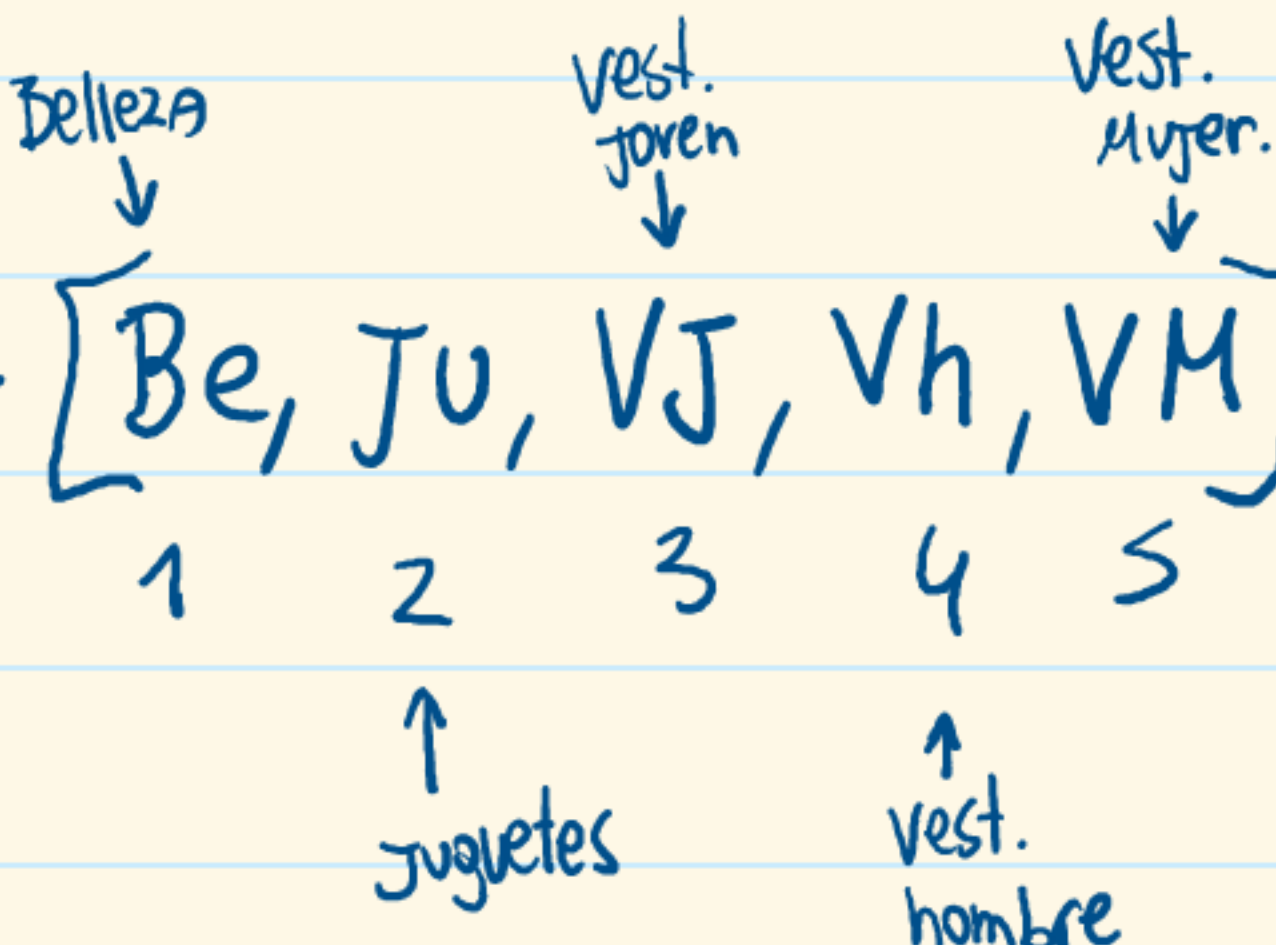 Belleza
vest.
Joven
Vest.
Mujer.
[Be, Ju, VJ, Vh, VM]
1 2 3 4 5
Juguetes
vest.
hombre